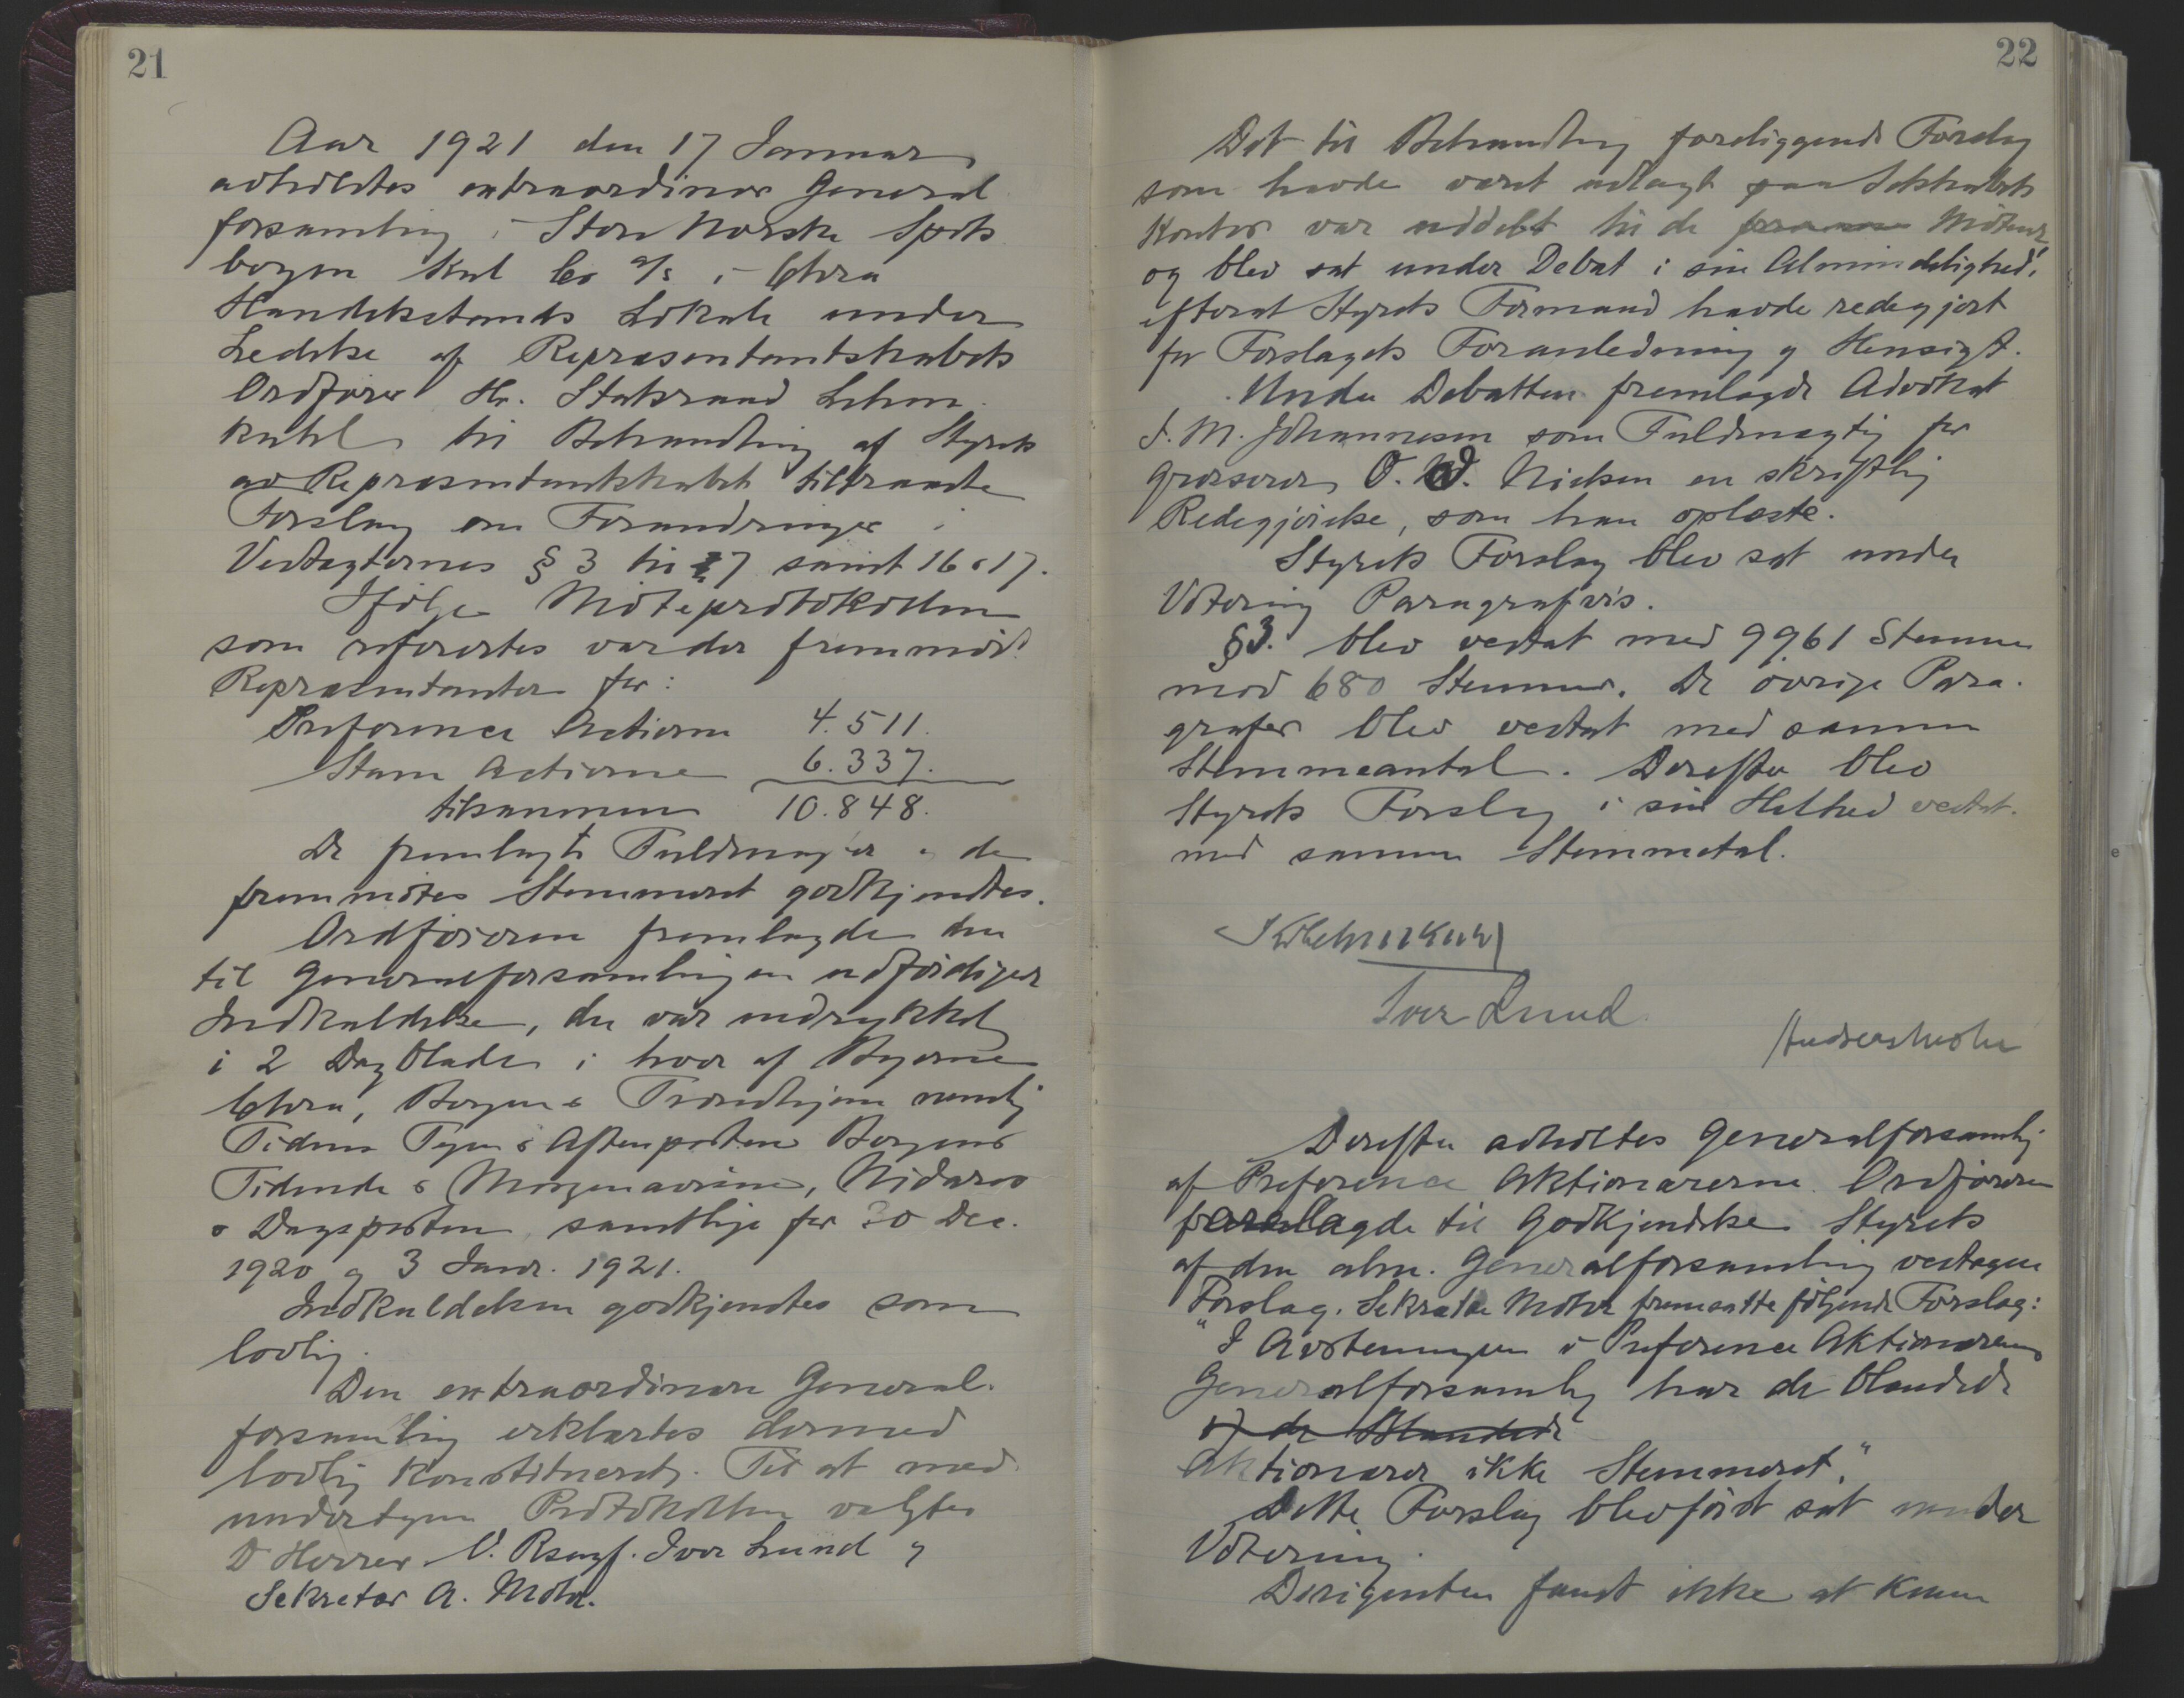 21
Aar 1921 den 17 Januar
avholdtes extraordinær General
forsamling i Store Norske Spits
bergen Kul Co A/S i Chra
Handelsstands Lokale under
Ledelse af Repræsentantskabets
Ordfører Hr. Statsraad Lehm
kuhl til Behandling af Styrets
av Repræsentantskabet tiltraadte
Forslag om Forandringer i
Vedtægternes § 3 til 7 samt 16 & 17.
Ifølge Møteprotokollen
som refereertes var der fremmødt
Repræsentanter for:
Preference Actierne 4.511.
Stam Actierne 6.337.
tilsammen 10.848.
De fremlagte Fuldmagter & de
fremmøtes Stemmeret godkjendtes.
Ordføreren fremlagde den
til Generalforsamlingen udfærdiget
Indkaldelse, der var indrykket
i 2 Dagblade i hver af Byerne
Chra, Bergen & Trondhjem nemlig
Tidens Tegn & Aftenposten Bergens
Tidende & Morgenavisen, Nidaros
& Dagsposten samtlige for 30 Dec.
1920 og 3 Janr. 1921.
Indkaldelsen godkjendtes som
lovlig.
Den extraordinære General-
forsamling erklærtes dermed
lovlig konstitueret. Til at med
undertegne Protokollen valgtes
D Herrer O. Rsagf. Iver Lund og
Sekretær A. Mohr.
22
Det til Behandling foreliggende Forslag
som havde været utlagt paa Selskabets
Kontor var uddelt til de Møtende
og blev sat under Debat i sin Almindelighed,
efterat Styrets Formand havde redegjort
for Forslagets Foranledning og Hensigt.
Under Debatten fremlagde Advokat
J. M. Johannesen som Fuldmægtig for
Grosserer O. W. Nielsen en skriftlig
Redegjørelse, som han oplæste.
Styrets Forslag blev sat under
Votering Paragrafvis.
§3. blev vedtat med 9961 Stemmer
mod 680 Stemmer. De øvrige Para-
grafer blev vedtat med samme
Stemmeantal. Derefter blev
Styrets Forslag i sin Helhed vedtat
med samme Stemmetal.
Lehmkuhl
Iver Lund
Andreas Mohr
Derefter avholdtes Generalforsamlig
af Preference Aktionærerne. Ordføreren
fremlagde til Godkjendelse Styrets
af den alm. Generalforsamling vedtagne
Forslag. Sekretær Mohr fremsatte følgende Forslag:
"I Avstemningen i Preference Aktionærernes
Generalforsamlig har de blandede
af de Blandede
Aktionærer ikke Stemmeret."
Dette Forslag blev først sat under
Votering.
Dirigenten fandt ikke at kunne